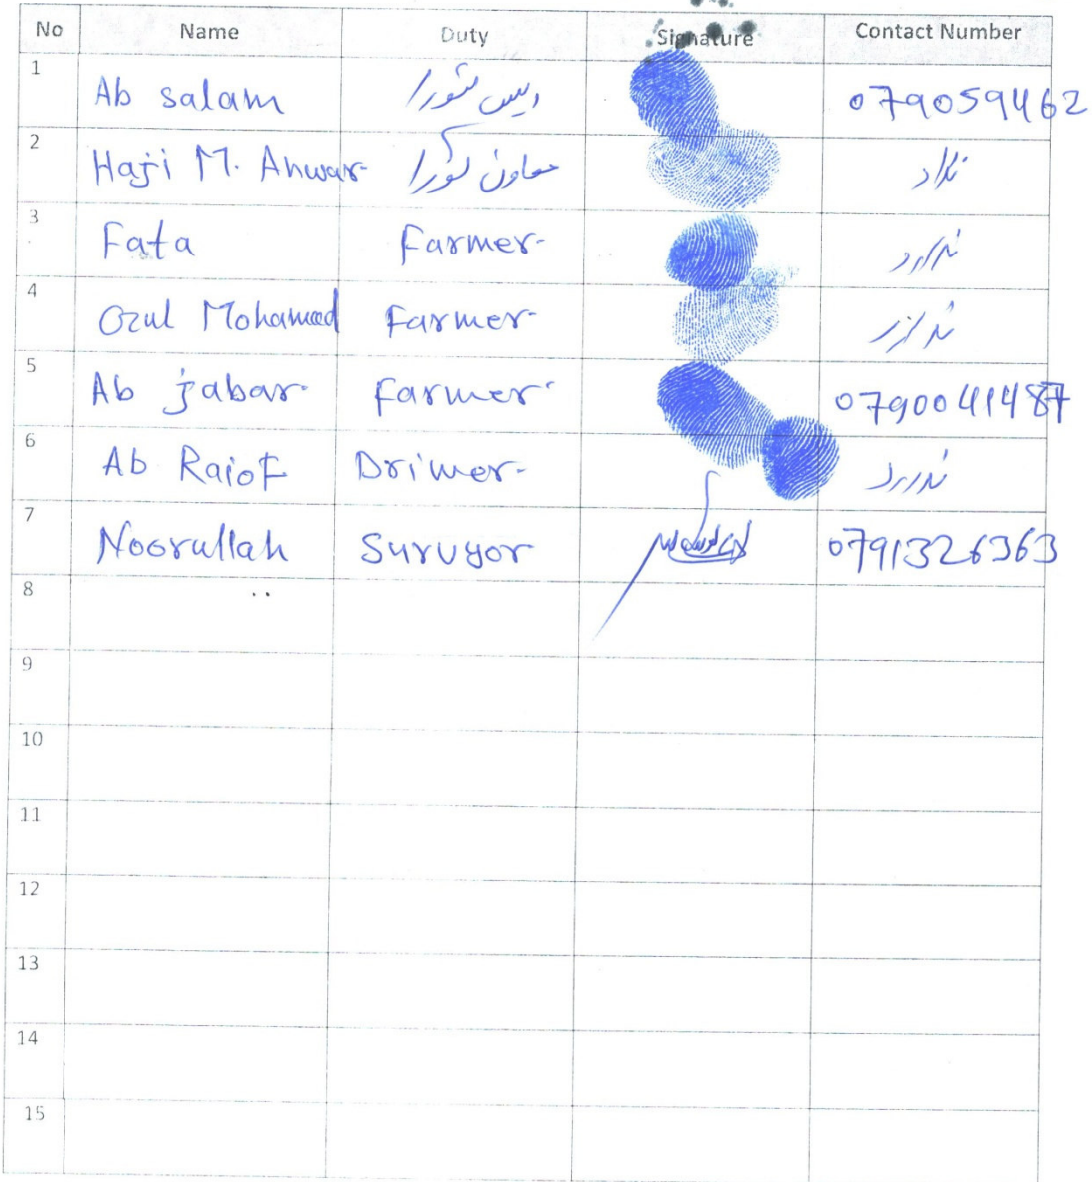 No Name Duty Signature Contact Number
1 Ab salam رئیس شورا 079059462
2 Haji M. Anwar معاون شورا ندارد
3 Fata Farmer ندارد
4 Gzul Mohamad Farmer ندارد
5 Ab jabar Farmer 0790041487
6 Ab Raiof Drimer ندارد
7 Noorullah Suruyor 0791326363
8
9
10
11
12
13
14
15